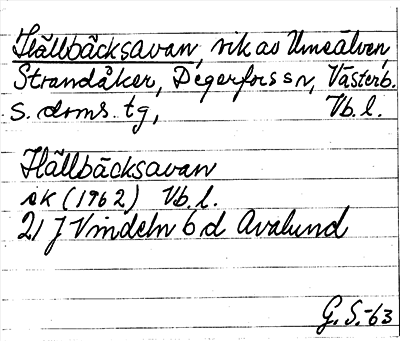 Hällbäcksavan, vik av Umeälven,
Strandåker, Degerfors sn, Västerb.
s. doms. tg, Vb. l.
Hällbäcksavan
ek (1962) Vb. l.
21 J Vindeln 6 d Avalund
G. S.-63